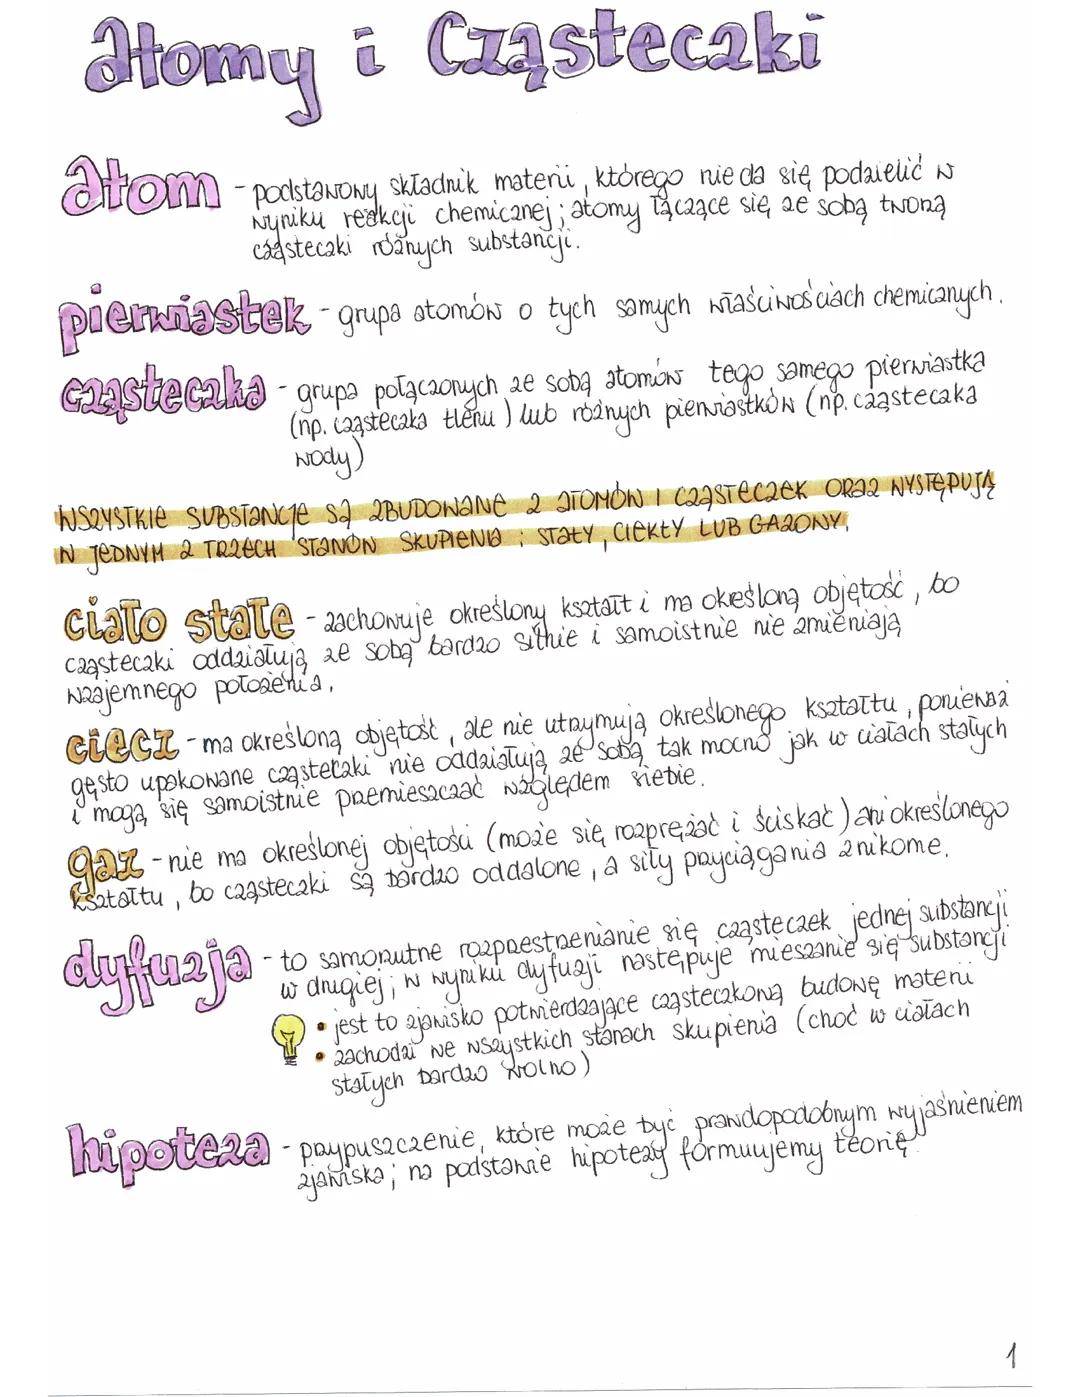 atomy i Cząsteczki
atom - podstawowy składnik materii, którego nie da się podzielić w
wyniku reakcji chemicznej; atomy łączące się ze sobą tworzą
cząsteczki różnych substancji.
pierwiastek - grupa atomów o tych samych właściwościach chemicznych.
cząsteczka - grupa połączonych ze sobą atomów tego samego pierwiastka
(np. cząsteczka tlenu) lub różnych pierwiastków (np. cząsteczka
wody)
WSZYSTKIE SUBSTANCJE SĄ ZBUDOWANE Z ATOMÓW I CZĄSTECZEK ORAZ WYSTĘPUJĄ
W JEDNYM Z TRZECH STANÓW SKUPIENIA: STAŁY, CIEKŁY LUB GAZOWY.
ciało stałe - zachowuje określony kształt i ma określoną objętość, bo
cząsteczki oddziałują ze sobą bardzo silnie i samoistnie nie zmieniają
wzajemnego położenia.
ciecz - ma określoną objętość, ale nie utrzymują określonego kształtu, ponieważ
gęsto upakowane cząsteczki nie oddziałują ze sobą tak mocno jak w ciałach stałych
i mogą się samoistnie przemieszczać względem siebie.
gaz - nie ma określonej objętości (może się rozprężać i ściskać) ani określonego
kształtu, bo cząsteczki są bardzo oddalone, a siły przyciągania znikome.
dyfuzja - to samorzutne rozprzestrzenianie się cząsteczek jednej substancji
w drugiej; w wyniku dyfuzji następuje mieszanie się substancji
• jest to zjawisko potwierdzające cząsteczkową budowę materii
• zachodzi we wszystkich stanach skupienia (choć w ciałach
stałych bardzo wolno)
hipoteza - przypuszczenie, które może być prawdopodobnym wyjaśnieniem
zjawiska; na podstawie hipotezy formuujemy teorię
1